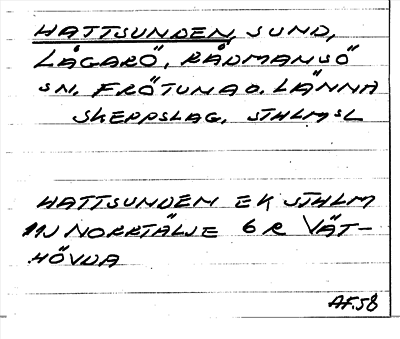 HATTSUNDEN, SUND,
LÅGARÖ, RÅDMANSÖ
SN, FRÖTUNA O. LÄNNA
SKEPPSLAG, STHLMSL
HATTSUNDEN EK STHLM
11J NORRTÄLJE 6 R VÄT-
HÖVDA
AF.58